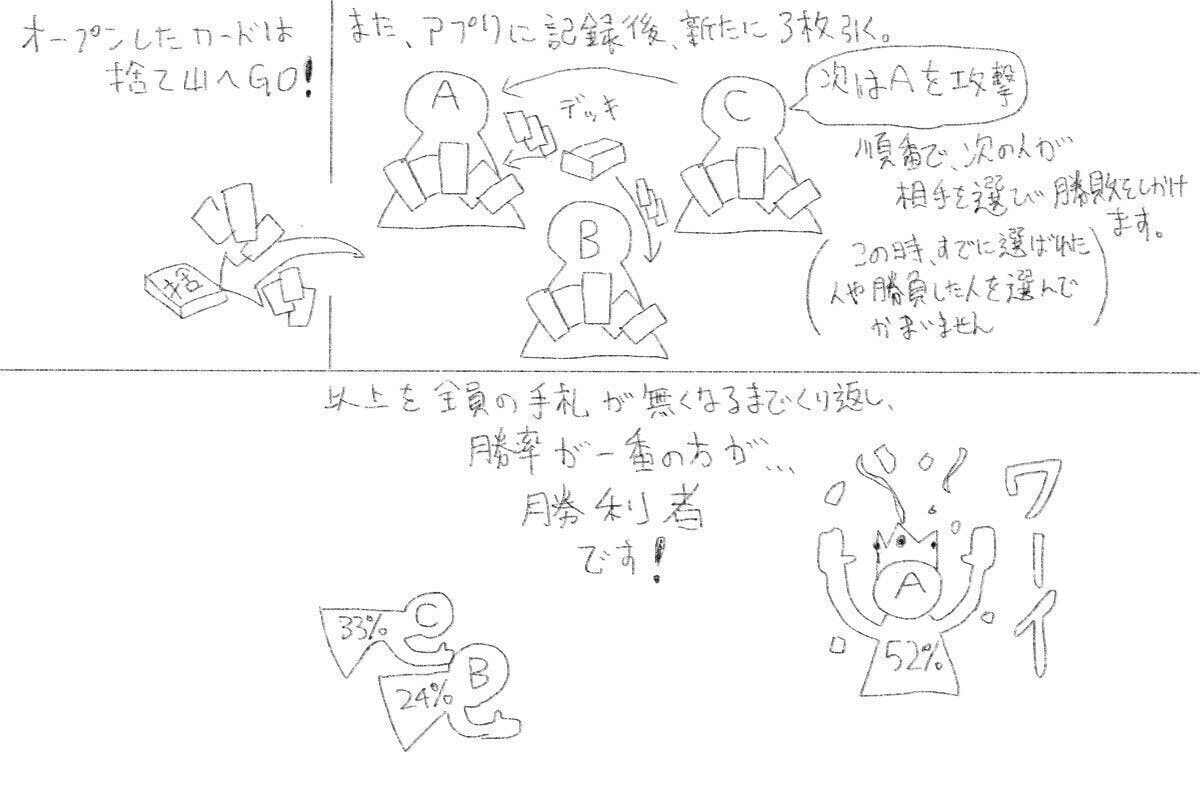 オープンしたカードは
捨て山へGO!
捨
また、アプリに記録後、新たに3枚引く。
A
デッキ
C
次はAを攻撃
B
順番で、次の人が
相手を選び勝敗をしかけ
ます。
(この時、すでに選ばれた
人や勝負した人を選んで
かまいません)
以上を全員の手札が無くなるまでくり返し、
勝率が一番の方が…
勝利者
です!
C
33%
B
24%
A
52%
ワーイ